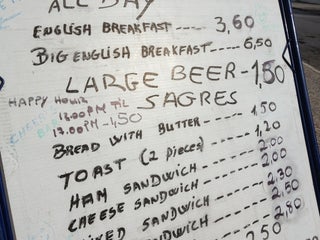 ALL DAY
ENGLISH BREAKFAST---- 3,60
BIG ENGLISH BREAKFAST---- 6,50
LARGE BEER-1,50
SAGRES
HAPPY HOUR
BREAD WITH BUTTER---- 1,50
TOAST (2 pieces)---- 1,20
HAM SANDWICH---- 2,00
CHEESE SANDWICH---- 2,00
SANDWICH---- 2,30
2,50
2,80